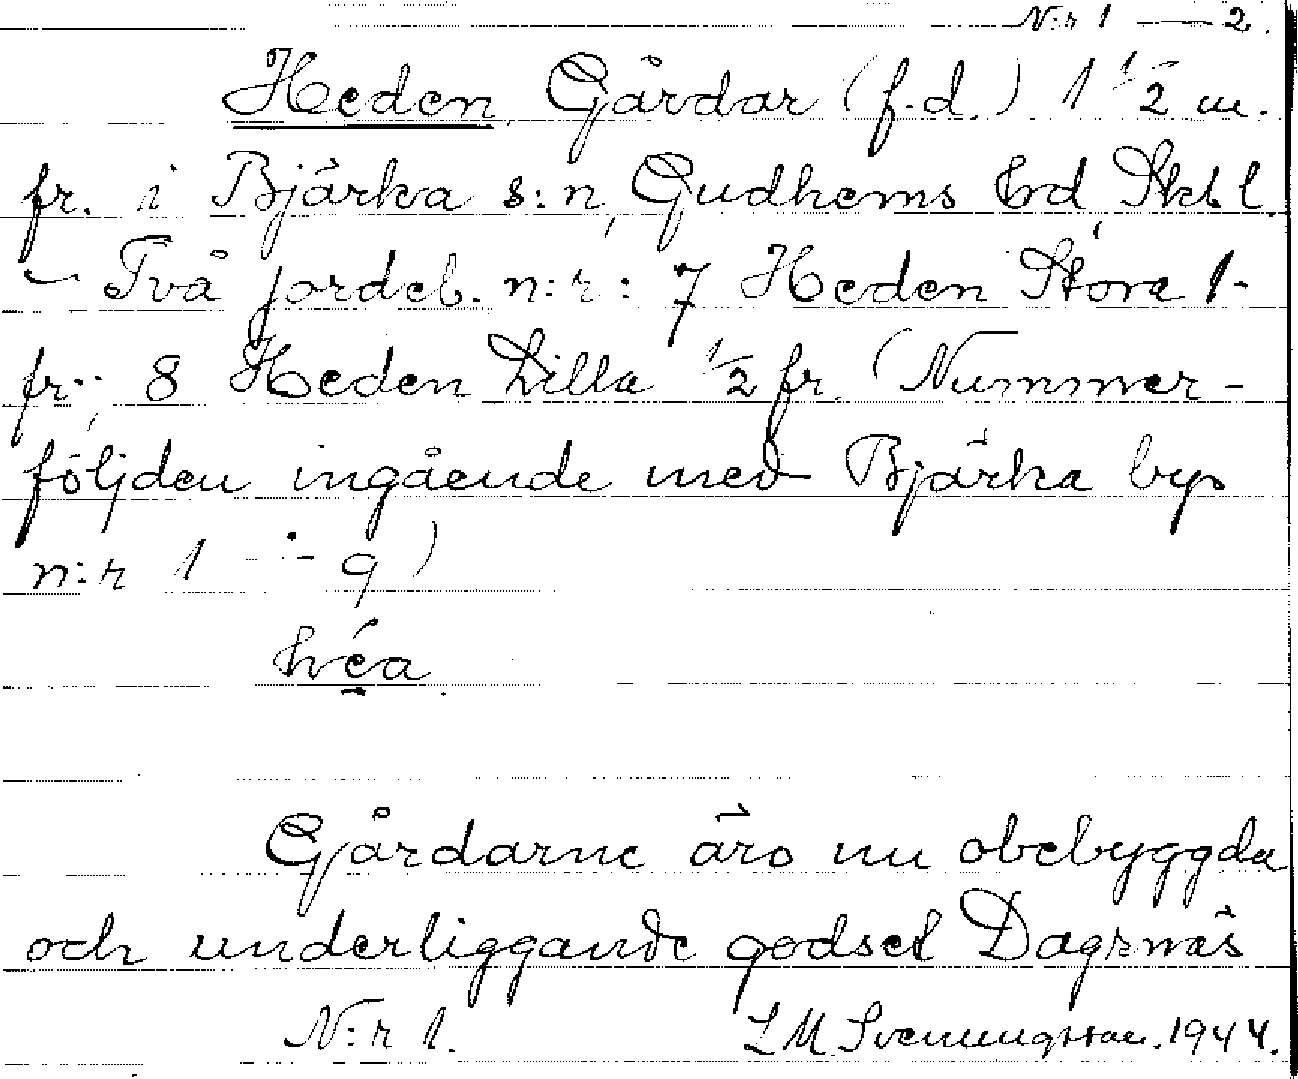 N:r 1 — 2.
Heden Gårdar (f.d.) 1 1/2 m.
fr. i Bjärka s:n, Gudhems hrd Skbl.
— Två jordeb. n:r: 7 Heden Stora 1
fr.; 8 Heden Lilla 1/2 fr. (Nummer-
följden ingående med Bjärka bys
n:r 1 - 9)
héa
Gårdarne äro nu obebyggda
och underliggande godset Dagsnäs
N:r 1. L M Svenungsson. 1944.